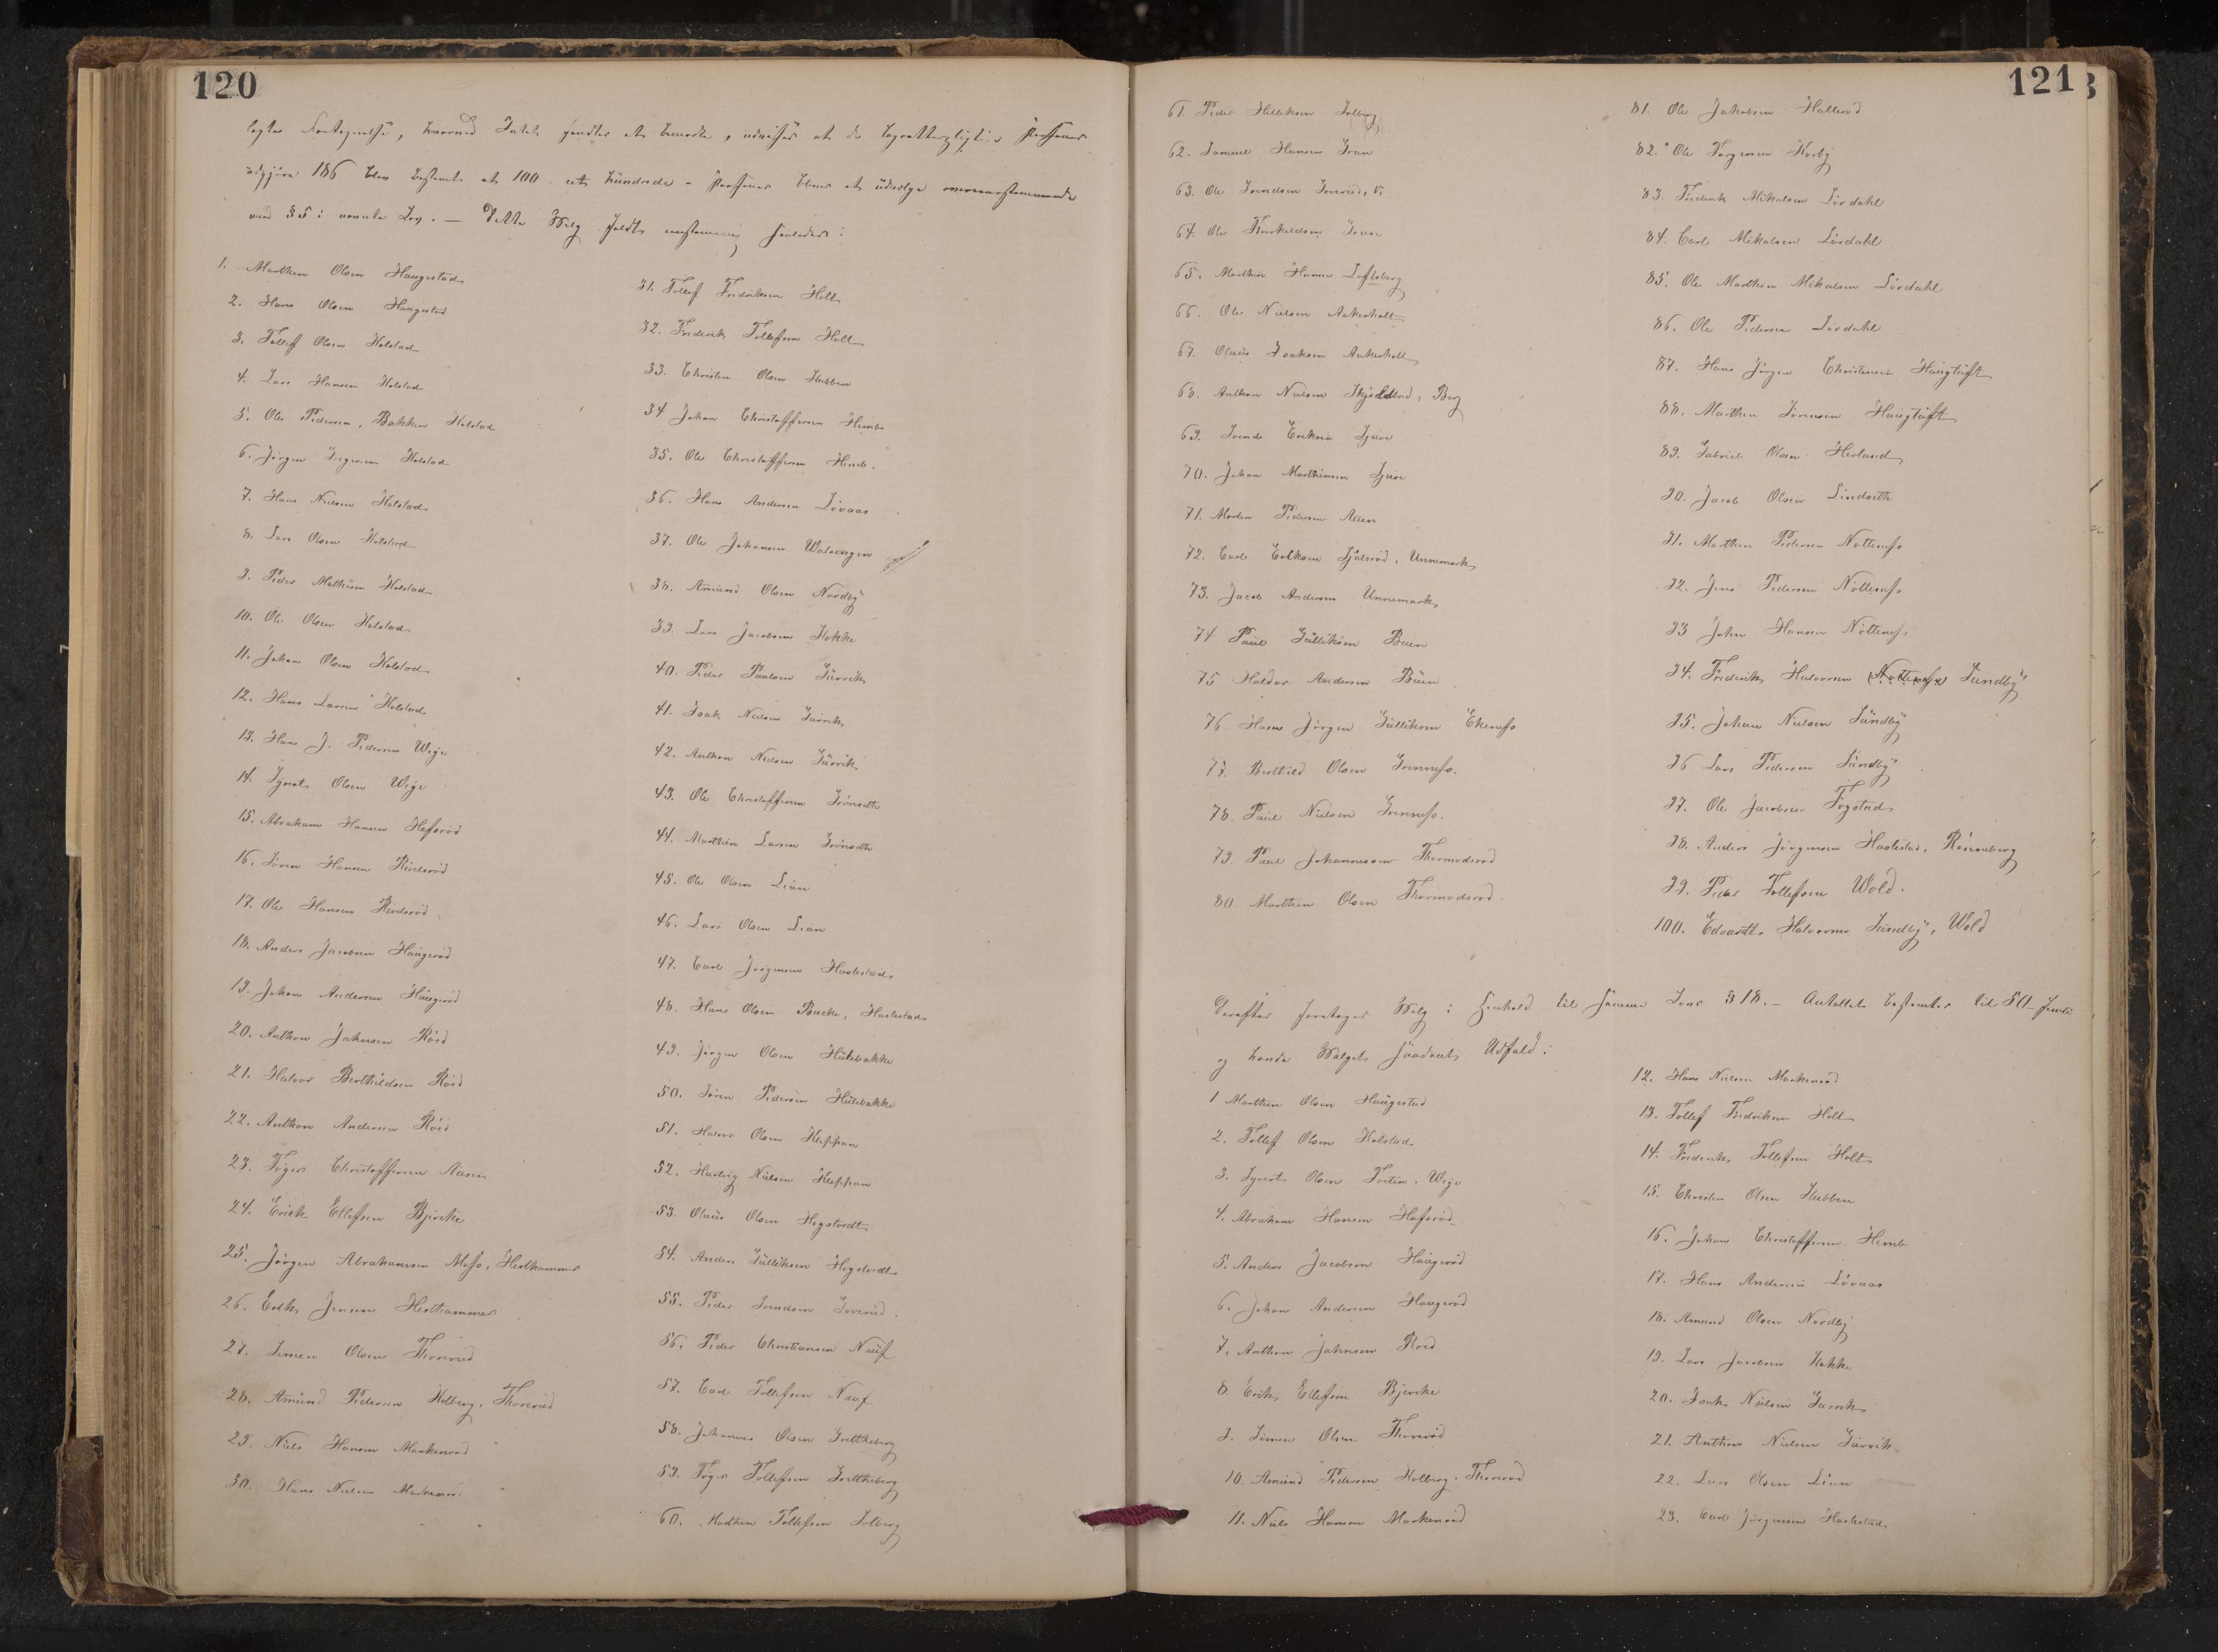 120
lagte Fortegnelse, hvorved Intet fandtes at bemærke, udviser at de Lagrettepligtige Personer
udgjøre 186 blev bestemt at 100 et hundrede Personer bliver at udvælge overensstemmende
med § 5 i nævnte Lov. — Dette Valg faldt enstemmig saaledes:
1. Marthin Olsen Haugestad
2. Hans Olsen Haugestad
3. Tollef Olsen Holstad
4. Lars Hansen Holstad
5. Ole Pedersen, Bakken Holstad
6. Jörgen Holstad
7. Hans Nielsen Holstad
8. Lars Olsen Holstad
9. Peder Mathisen Holstad
10. Ole Olsen Holstad
11. Johan Olsen Holstad
12. Hans Larsen Holstad
13. Hans J. Pedersen Wege
14. Syvert Olsen Wege
15. Abraham Hansen Hafsröd
16. Sören Hansen Röedsröd
17. Ole Hansen Röedsröd
18. Anders Jacobsen Haugeröd
19. Johan Andersen Haugeröd
20. Anthon Jahnsen Röed
21. Halvor Berthildsen Röed
22. Anthon Andersen Röed
23. Töger Christoffersen Aasen
24. Erick Ellefsen Bjercke
25. Jörgen Abrahamsen Moss, Hesthammer
26. Erik Jensen Hesthammer
27. Simen Olsen Thoreröd
28. Amund Pedersen Holberg, Thoreröd
29. Niels Hansen Markeröd
30. Hans Nielsen Markeröd
31. Tollef Fredriksen Holt
32. Frederik Tollefsen Holt
33. Christen Olsen Hubben
34 Johan Christoffersen Himb
35. Ole Christoffersen Himb.
36. Hans Andersen Lövaas
37. Ole Johansen Walevegen
38. Amund Olsen Nordby
39. Lars Jacobsen Hakke
40. Peder Paulsen Gurrik
41. Isak Nielsen Gurrik
42. Anthon Nielsen Gurrik
43. Ole Christoffersen Grönseth
44. Marthin Larsen Grönseth
45. Ole Olsen Lian
46. Lars Olsen Lian
47. Carl Jörgensen Haslestad
48. Hans Olsen Backe, Haslestad
49. Jörgen Olsen Hulebakke
50. Sören Pedersen Hulebakke
51. Halvor Olsen Kleppan
52. Hartvig Nielsen Kleppan
53. Olaus Olsen Hogstvedt
54. Anders Gulliksen Hogstvedt
55. Peder Svendsen Sverud
56. Peder Christiansen Nauf
57. Carl Tollefsen Nauf
58. Johannes Olsen Grettheberg
59. Töger Tollefsen Grettheberg
60. Mathen Tollefsen Solberg
121
61. Peder Helliksen Solberg
62. Samuel Hansen Gran
63. Ole Svendsen Sverud, V.
64. Ole Thorkildsen Gran
65. Marthin Hansen Loftsberg
66. Ole Nielsen Ankerholt
67. Olaus Isaksen Ankerholt
68. Anthon Nielsen Skjeldbred, Berg
69. Svend Eriksen Gjuve
70. Johan Marthinsen Gjuve
71. Morten Pedersen Auen
72. Carl Eriksen Gjelsröd, Unnemark
73. Jacob Andersen Unnemark
74 Paul Gulliksen Buen
75 Haldor Andersen Buen
76 Hans Jörgen Gulliksen Ekeness
77. Berthild Olsen Grenness.
78. Paul Nielsen Grenness.
79. Paul Johannessen Thormodsröd
80 Marthin Olsen Thormodsröd.
81. Ole Jakobsen Halleröd
82. Ole Torgersen Horby
83. Frederik Mikalsen Lördahl
84. Carl Mikalsen Lördahl
85. Ole Marthin Mikalsen Lördahl
86. Ole Pedersen Lördahl
87. Hans Jörgen Christensen Haugtuft
88. Marthin Sörensen Haugtuft
89. Gabriel Olsen Herland
90. Jacob Olsen Lindseth
91. Marthin Pedersen Nötteness
92. Jens Pedersen Nötteness
93 John Hansen Nötteness
94. Frederik Halvorsen Nötteness Sundby
95. Johan Nielsen Sundby
96 Lars Pedersen Sundby
97. Ole Jacobsen Fogstad
98. Anders Jörgensen Haslestad, Rönneberg
99. Peder Tollefsen Wold.
100. Edvardt Halvorsen Sundby, Wold
Derefter foretoges Valg i Henhold til samme Lovs § 18. – Antallet bestemtes til 50 femti
og havde Valget saadant Udfald:
1 Marthin Olsen Haugestad
2. Tollef Olsen Holstad
3. Syvert Olsen Wege
4. Abraham Hansen Hafsröd
5. Anders Jacobsen Haugeröd
6. Johan Andersen Haugeröd
7. Anthon Jahnsen Röed
8. Erik Ellefsen Bjercke
9. Simen Olsen Thoreröd
10. Amund Pedersen Holberg, Thoreröd
11. Niels Hansen Markeröd
12. Hans Nielsen Markeröd
13. Tollef Fredriksen Holt
14. Frederik Tollefsen Holt
15. Christen Olsen Hubben
16. Johan Christoffersen Himb
17. Hans Andersen Lövaas
18. Amund Olsen Nordby
19. Lars Jacobsen Hakke
20. Isak Nielsen Gurrik
21. Anthon Nielsen Gurrik
22. Lars Olsen Lian
23. Carl Jörgensen Haslestad